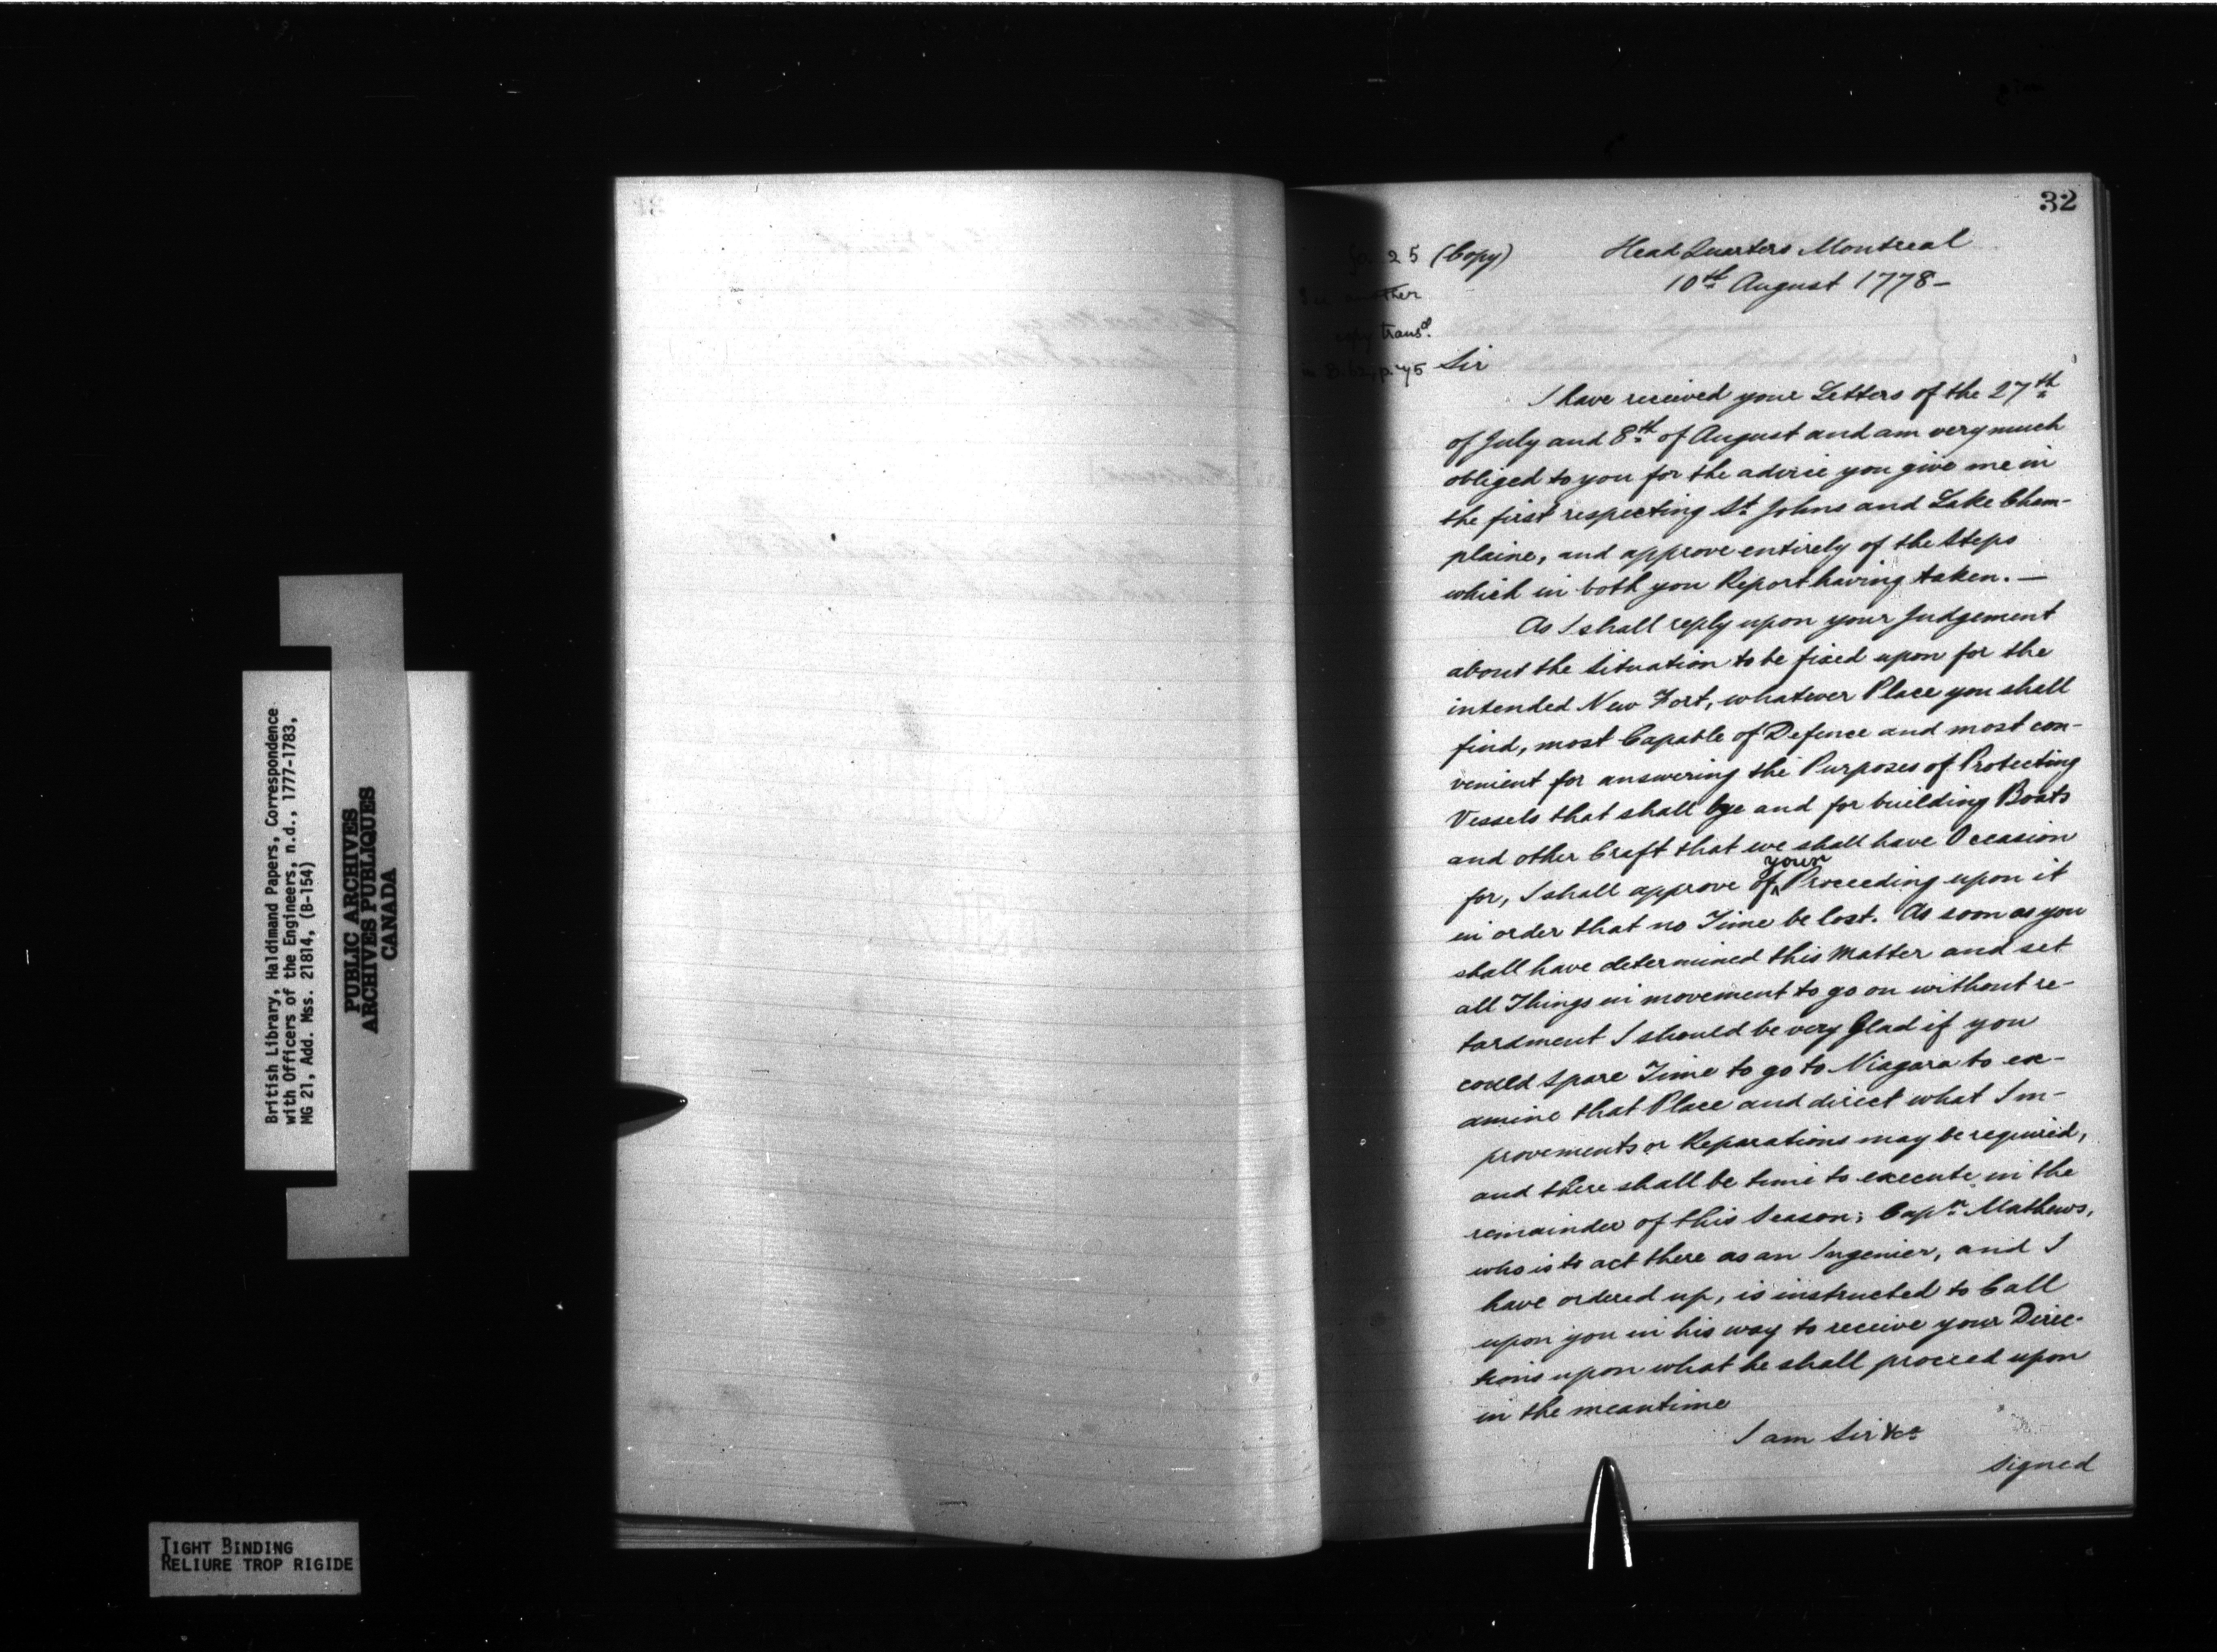 British Library, Haldimand Papers, Correspondence
with Officers of the Engineers, n.d., 1777-1783,
MG 21, Add. Mss. 21814, (B-154)
PUBLIC ARCHIVES
ARCHIVES PUBLIQUES
CANADA
TIGHT BINDING
RELIURE TROP RIGIDE
32
25 (Copy)
Head Quarters Montreal
10th August 1778-
another
copy transd.
p. 45
Sir
I have received your Letters of the 27th
of July and 8th of August and am very much
obliged to you for the advice you give me in
the first respecting St Johns and Lake Cham-
plaine, and approve entirely of the Steps
which in both you Report having taken. —
As I shall reply upon your Judgement
about the Situation to be fixed upon for the
intended New Fort, whatever Place you shall
find, most Capable of Defence and most con-
venient for answering the Purposes of Protecting
Vessels that shall lye and for building Boats
and other Craft that we shall have Occasion
for, I shall approve of your Proceeding upon it
in order that no Time be lost. As soon as you
shall have determined this Matter and set
all Things in movement to go on without re-
tardment I should be very Glad if you
could Spare Time to go to Niagara to ex-
amine that Place and direct what Im-
provements or Reparations may be required,
and there shall be time to execute in the
remainder of this Season; Captn Mathews,
who is to act there as an Ingenier, and I
have ordered up, is instructed to Call
upon you in his way to receive your Direc-
tions upon what he shall proceed upon
in the meantime
I am Sir &ca
Signed